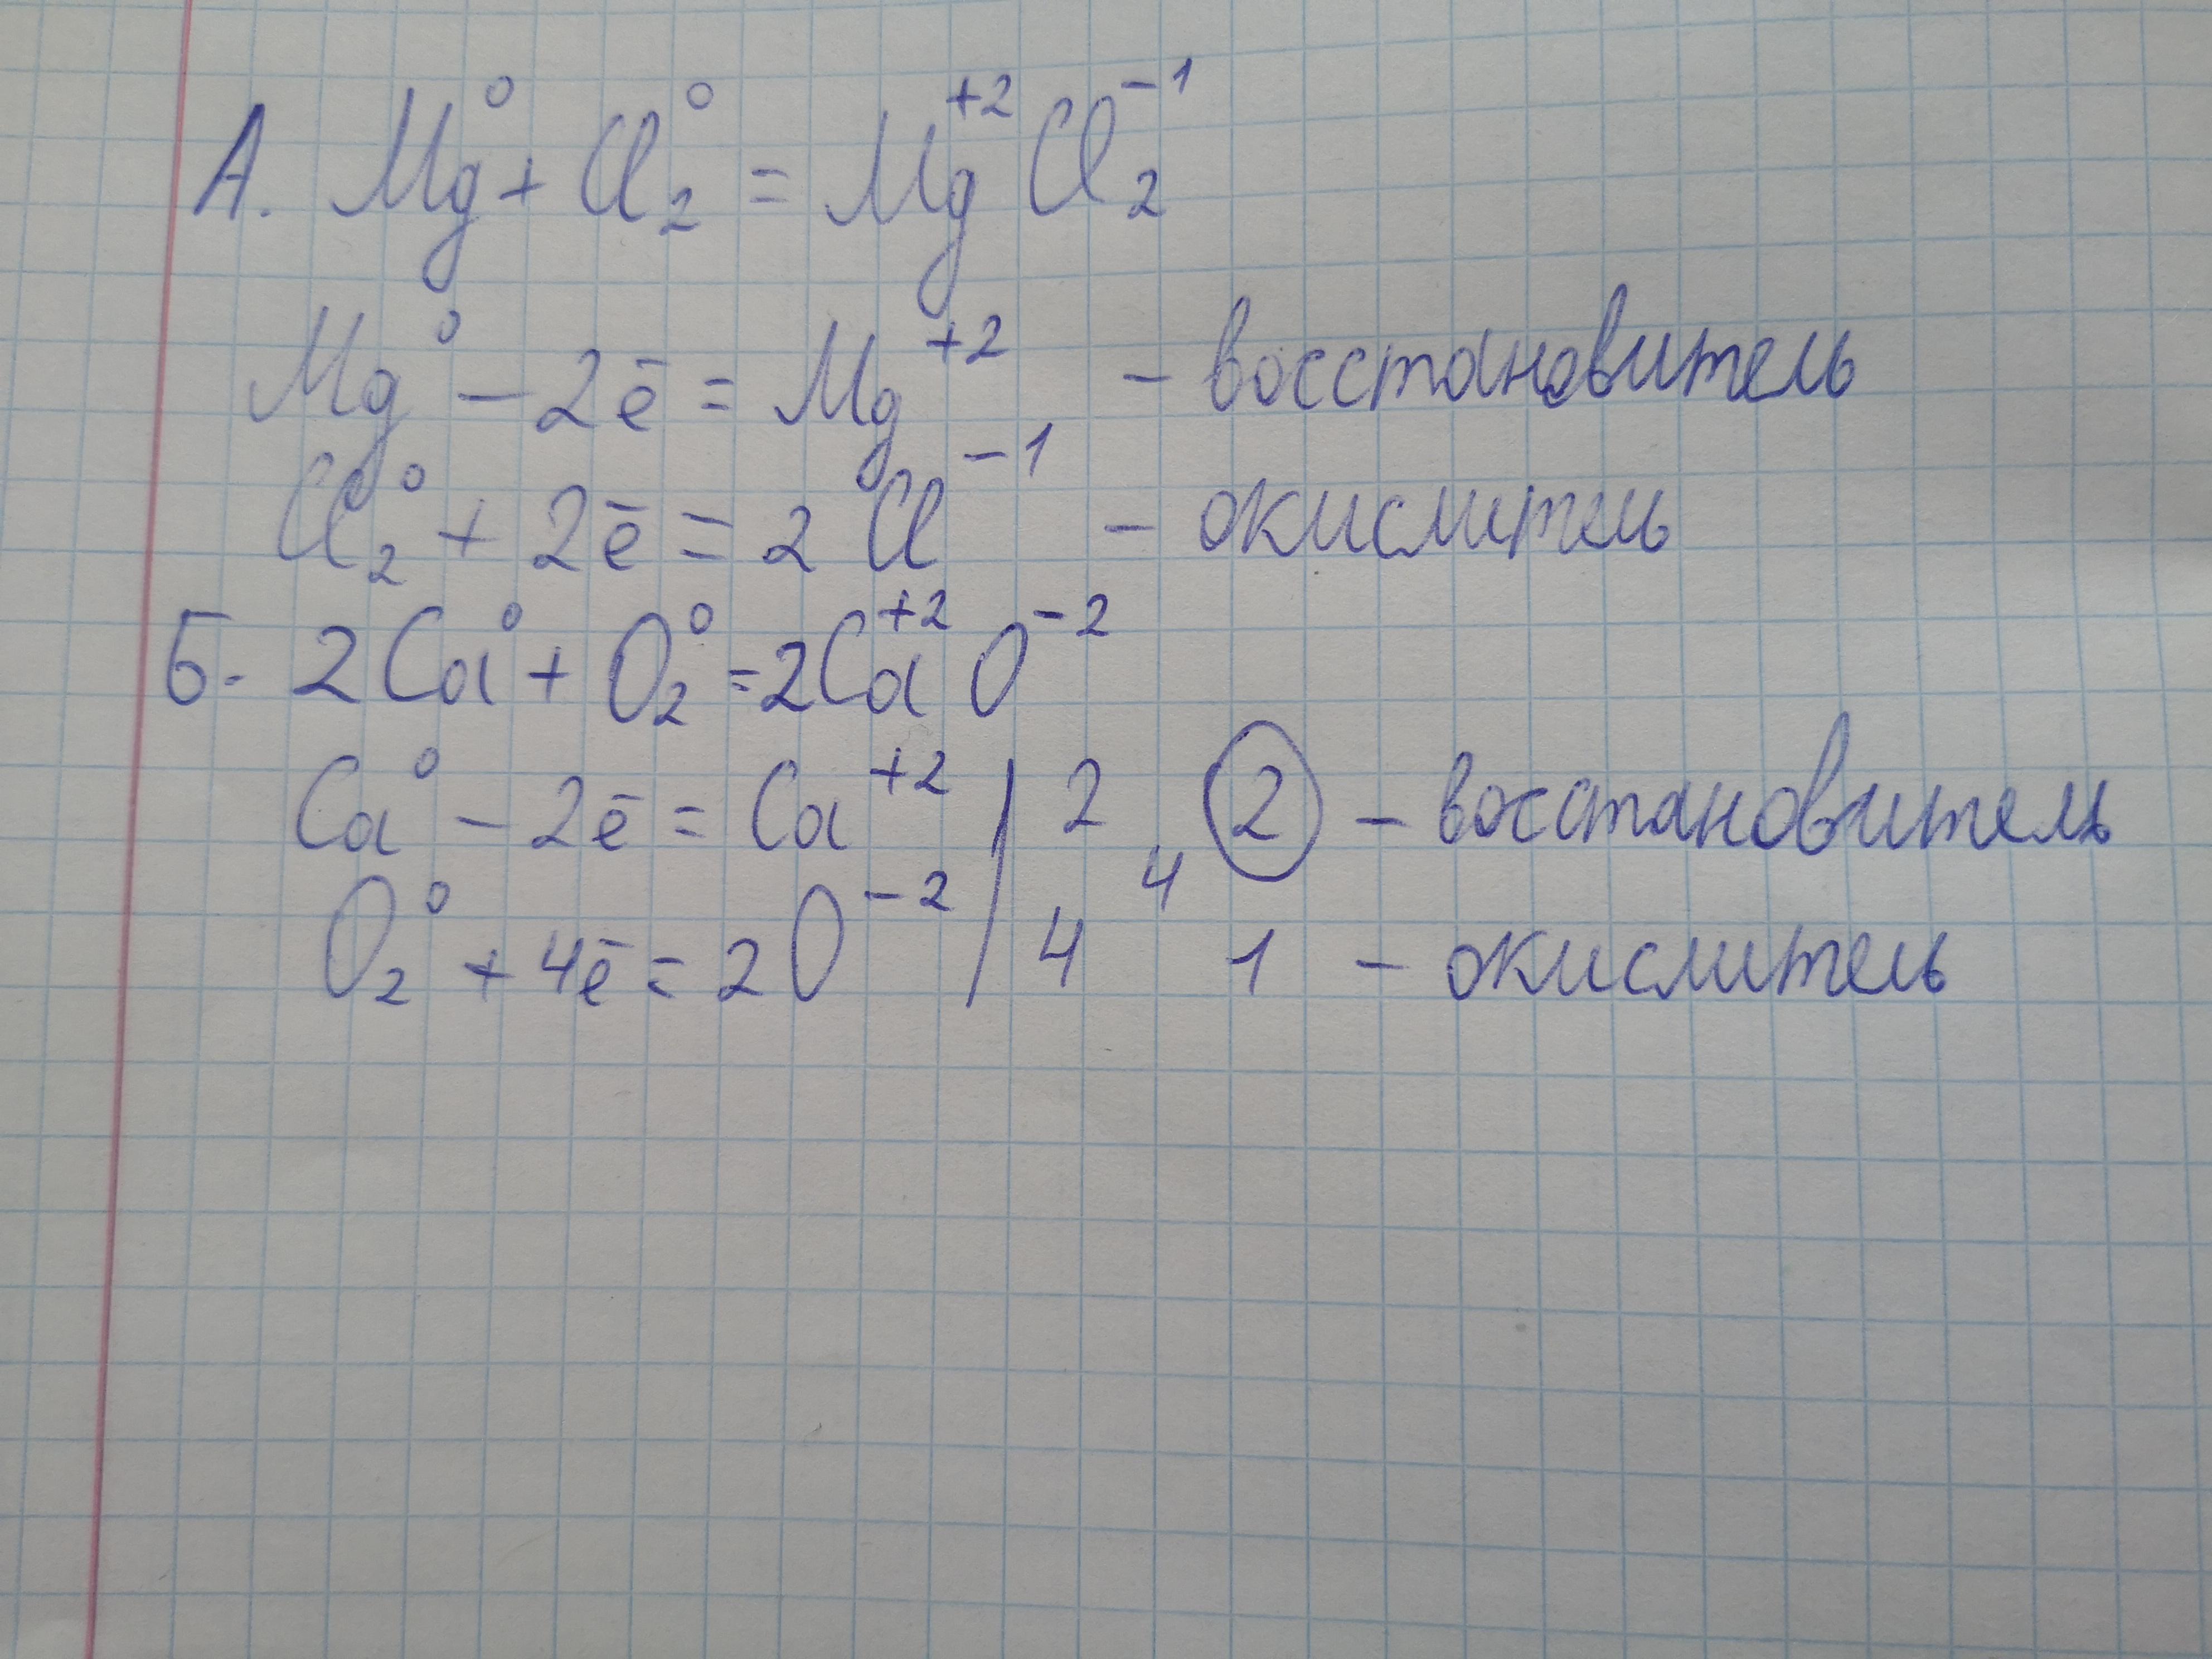 А. Mg⁰ + Cl₂⁰ = Mg⁺² Cl₂⁻¹
Mg⁰ – 2ē = Mg⁺² – восстановитель
Cl₂⁰ + 2ē = 2Cl⁻¹ – окислитель
Б. 2Ca⁰ + O₂⁰ = 2Ca⁺² O⁻²
Ca⁰ – 2ē = Ca⁺² | 2 4 2 – восстановитель
O₂⁰ + 4ē = 2O⁻² | 4 1 – окислитель